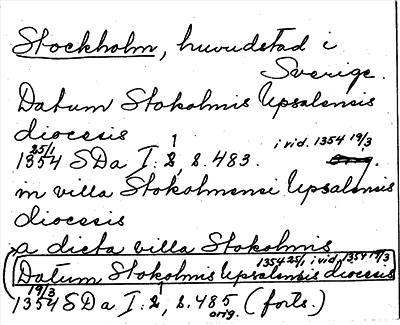 Stockholm, huvudstad i
Sverige.
Datum Stokolmis Upsalensis
diocesis
25/1 1354 SDa I:1, s. 483. i vid. 1354 19/3
in villa Stokolmensi Upsalensis
diocesis
a dicta villa Stokolmis
1354 25/1 i vid. 1354 19/3
Datum Stokolmis Upsalensis diocesis
19/3 1354 SDa I:1, s. 485 orig. (forts.)